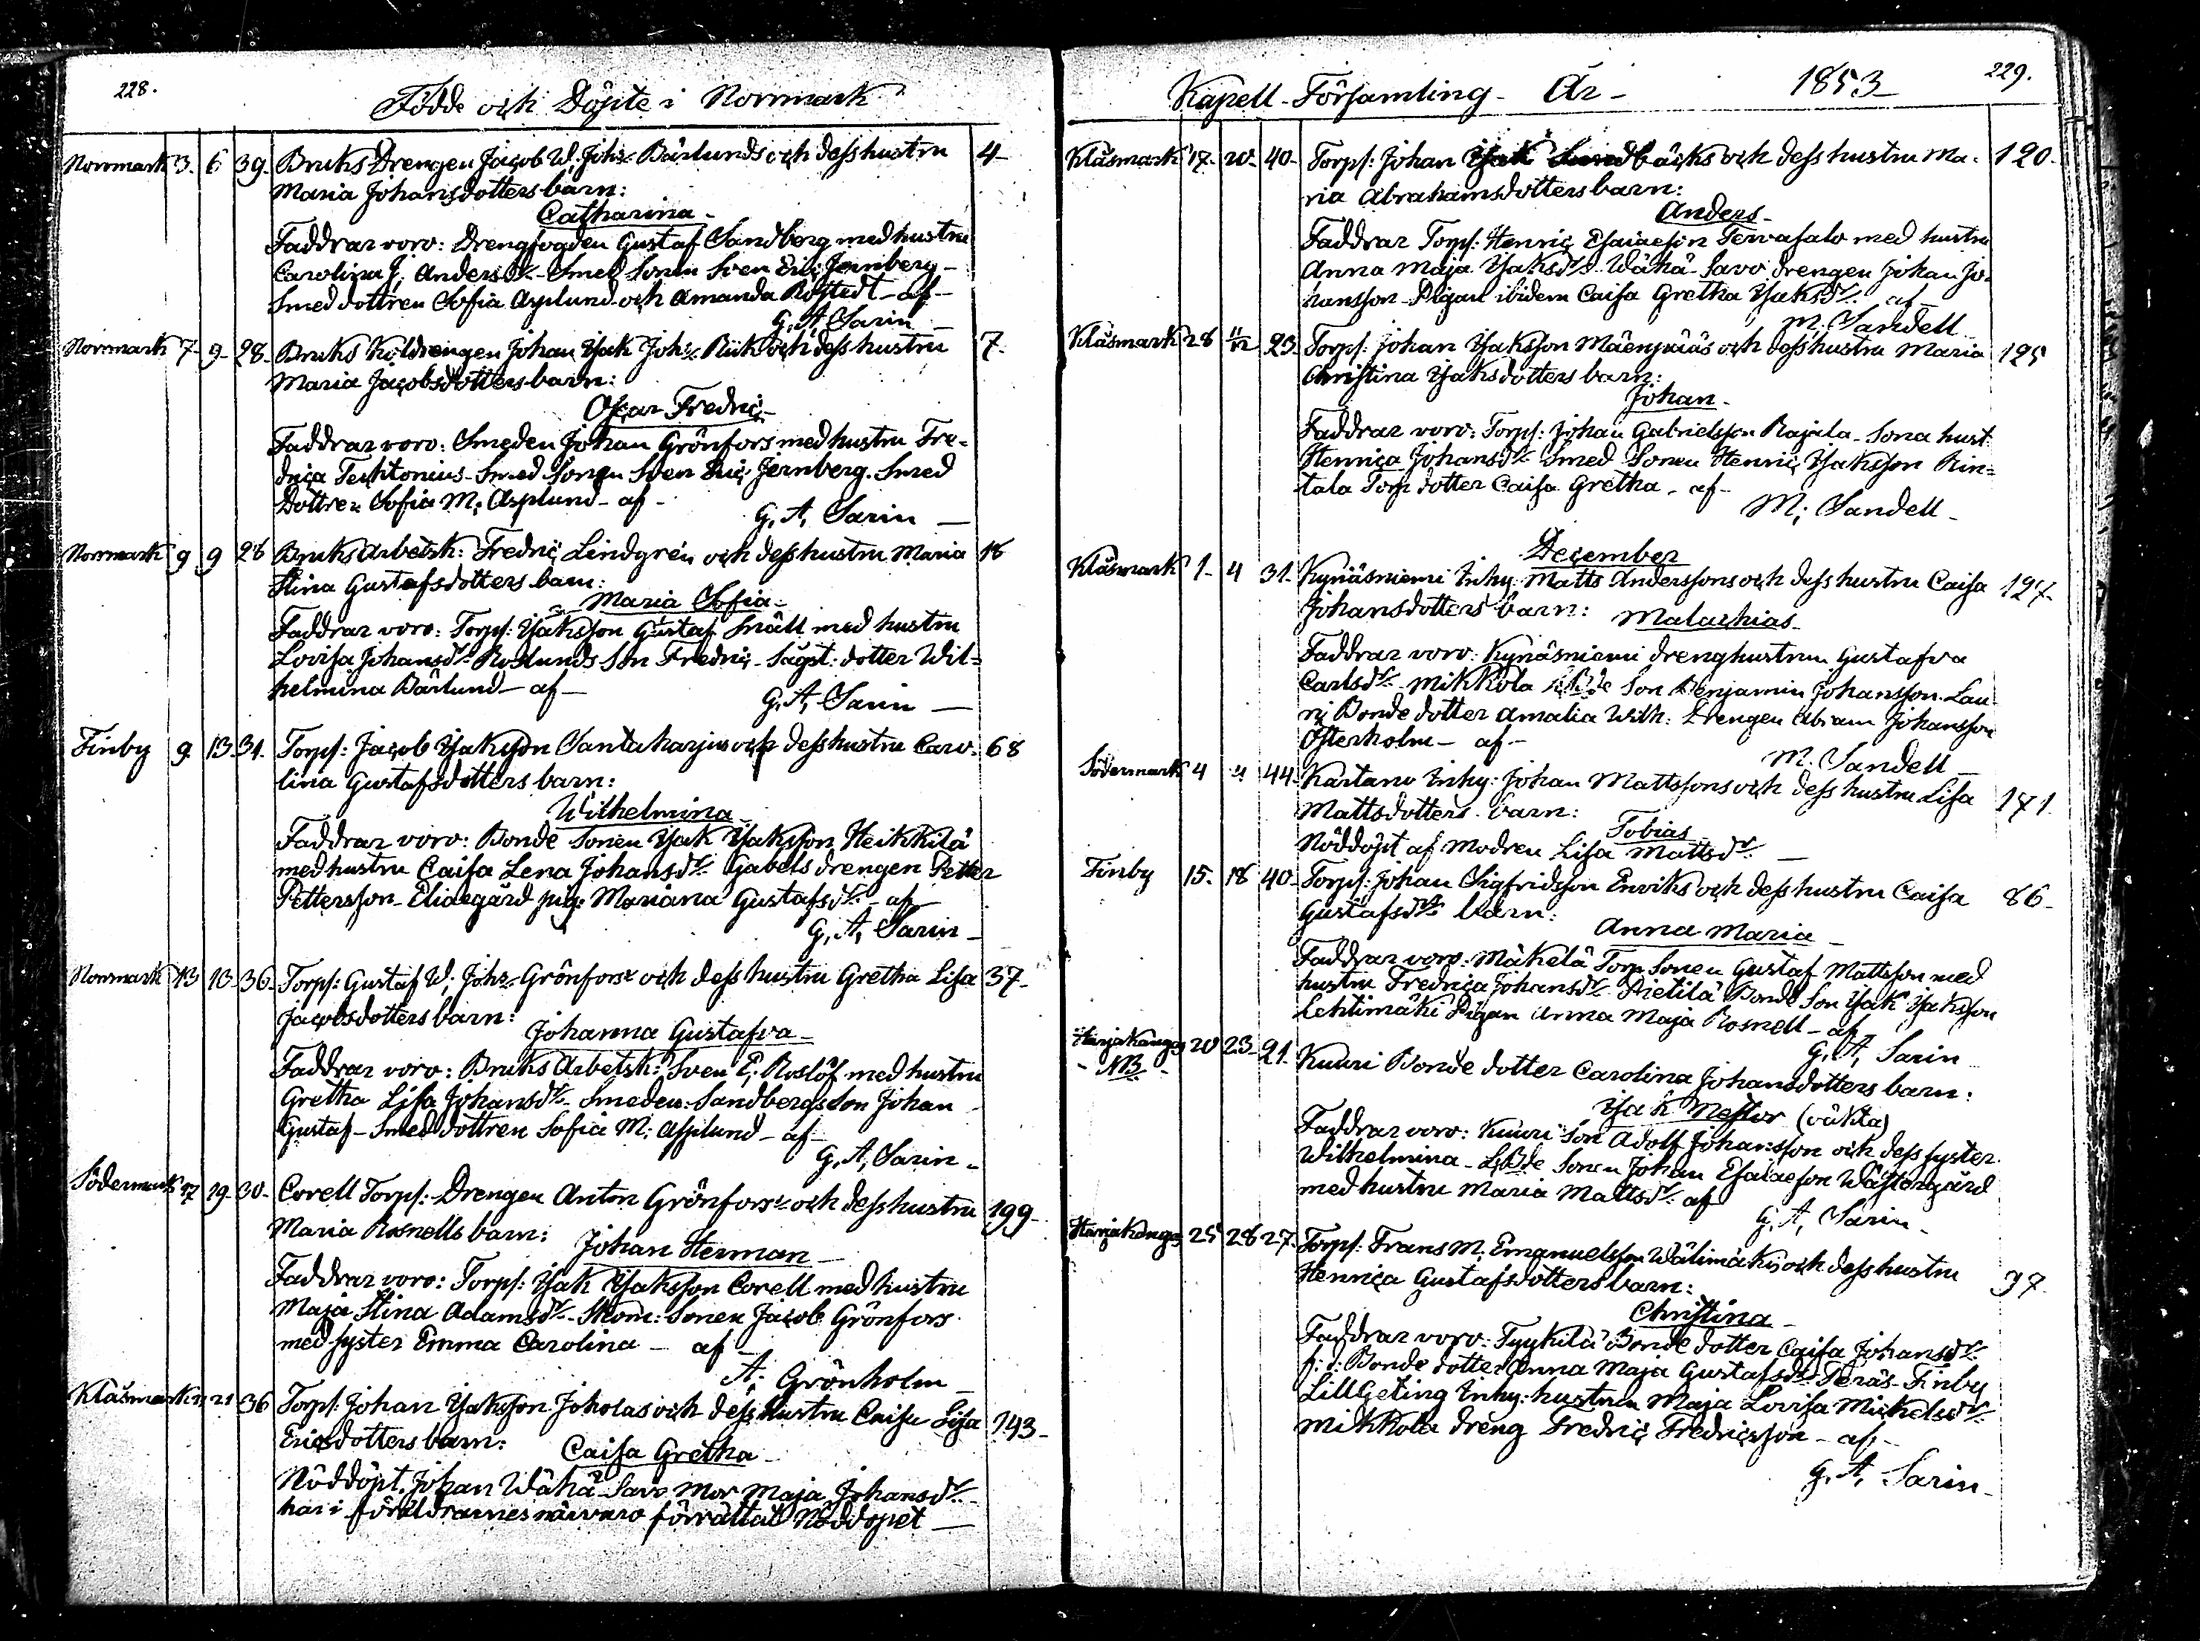 228.
Födde och Döpte i Norrmark
Norrmark 3. 6 39. Bruks Drengen Jacob W. Johs: Bärlunds och dess hustru 4.
Maria Johansdotters barn:
Catharina
Faddrar voro: Drengfogden Gustaf Sandberg med hustru
Carolina J. Andersdr. Smed Sonen Sven Eric Jernberg
Smed dottren Sofia Asplund och Amanda Rostedt - af -
G. A. Sarin
Norrmark 7. 9. 28. Bruks Koldrengen Johan Isak Johs: Riik och dess hustru 7.
Maria Jacobsdotters barn:
Oscar Fredric
Faddrar voro: Smeden Johan Grönfors med hustru Fre-
drica - Smed Sonen Sven Eric Jernberg. Smed
Dottren Sofia M. Asplund - af -
G. A. Sarin
Norrmark 9 9 28 Bruks Arbetsk: Fredric Lindgrén och dess hustru Maria 18
Stina Gustafsdotters barn:
Maria Sofia
Faddrar voro: Torps: Isaksson Gustaf Snäll med hustru
Lovisa Johansdr. Roslunds Son Fredric - Sägst: dotter Wil-
helmina Bärlund - af -
G. A. Sarin
Finby 9. 13. 31. Torps: Jacob Isaksson Santaharju och dess hustru Caro- 68
lina Gustafsdotters barn:
Wilhelmina
Faddrar voro: Bonde Sonen Isak Isaksson Heikkilä
med hustru Caisa Lena Johansdr. Gabels drengen Petter
Pettersson - Eliaegård pig: Mariana Gustafsdr. - af -
G. A. Sarin
Norrmark 13 13 36. Torps: Gustaf W. Johs: Grönfors och dess hustru Gretha Lisa 37.
Jacobsdotters barn:
Johanna Gustafva
Faddrar voro: Bruks Arbetsk: Sven E. Roslöf med hustru
Gretha Lisa Johansdr. Smeden: Sandbergs Son Johan
Gustaf - Smed dottren Sofia M: Asplund - af -
G. A. Sarin
Södermark 17 19. 30. Corell Torps: Drengen Anton Grönfors och dess hustru 199.
Maria Rosnells barn:
Johan Herman
Faddrar voro: Torps: Isak Isaksson Corell med hustru
Maja Stina Adamsdr. Skom: Sonen Jacob Grönfors
med syster Emma Carolina - af -
A. Grönholm
Klåsmark 21 36 Torps: Johan Isaksson Jokolas och dess hustru Caisa Lisa 143.
Ericsdotters barn:
Caisa Gretha
Nöddöpt. Johan Wähä Savo Mor Maja Johansdr.
har i föräldrarnes närvaro förrättat Nöddopet
229.
Kapell - Församling - År - 1853
Klåsmark 17. 20. 40. Torps: Johan och dess hustru Ma- 120.
ria Abrahamsdotters barn:
Anders
Faddrar Torps: Henric Esaiaeson Tervasalo med hustru
Anna Maja Isaksdr. Wähä Savo drengen Johan Jo-
hansson - Pigan ibidem Caisa Gretha Isaksdr. af
M. Sandell
Klåsmark 28 11/12 23. Torps: Johan Isaksson Mäenpääs och dess hustru Maria 125
Christina Isaksdotters barn:
Johan
Faddrar voro: Torps: Johan Gabrielsson Rajala - Sona hust.
Henrica Johansdr. Smed Sonen Henric Isaksson Rin-
tala Torp dotter Caisa Gretha - af -
M. Sandell
December
Klåsmark 1. 4 31. Kynäsniemi Inhy: Matts Anderssons och dess hustru Caisa 127.
Johansdotters barn: Malachias
Faddrar voro: Kynäsniemi drenghustrun Gustafva
Carlsdr. Mikkola Son Benjamin Johansson. Lau-
ri Bonde dotter Amalia Wilh: Drengen Abram Johansson
Österholm - af -
M. Sandell
Södermark 4 44. Kartano Inhy: Johan Mattssons och dess hustru Lisa 171.
Mattsdotters barn:
Tobias
Nöddöpt af Modren Lisa Mattsdr.
Finby 15. 18 40. Torps: Johan Sigfridsson Enviks och dess hustru Caisa 86.
Gustafsdrs barn:
Anna Maria
Faddrar voro: Mäkelä Torp Sonen Gustaf Mattsson med
hustru Fredrica Johansdr. Pietilä Bonde Son Isak Isaksson
Lehtimäki Pigan Anna Maja Rosnell - af -
G. A. Sarin
Harjakangas 20 23. 21. Kuuri Bonde dotter Carolina Johansdotters barn:
- NB -
Isak Nestor (oäkta)
Faddrar voro: Kuuri Son Adolf Johansson och dess syster
Wilhelmina - Sonen Johan Esaiaeson Wästergård
med hustru Maria Mattsdr. af
G. A. Sarin
Harjakangas 25 28 27. Torps: Frans M. Emanuelsson Wälimäki och dess hustru 37.
Henrica Gustafsdotters barn:
Christina
Faddrar voro: Tyykilä Bonde dotter Caisa Johansdr.
f: d: Bonde dotter Anna Maja Gustafsdr. Peräs - Finby
LillGeting Inhy: hustrun Maja Lovisa Mickelsdr.
Mikkola dreng Fredric Fredricsson - af -
G. A. Sarin